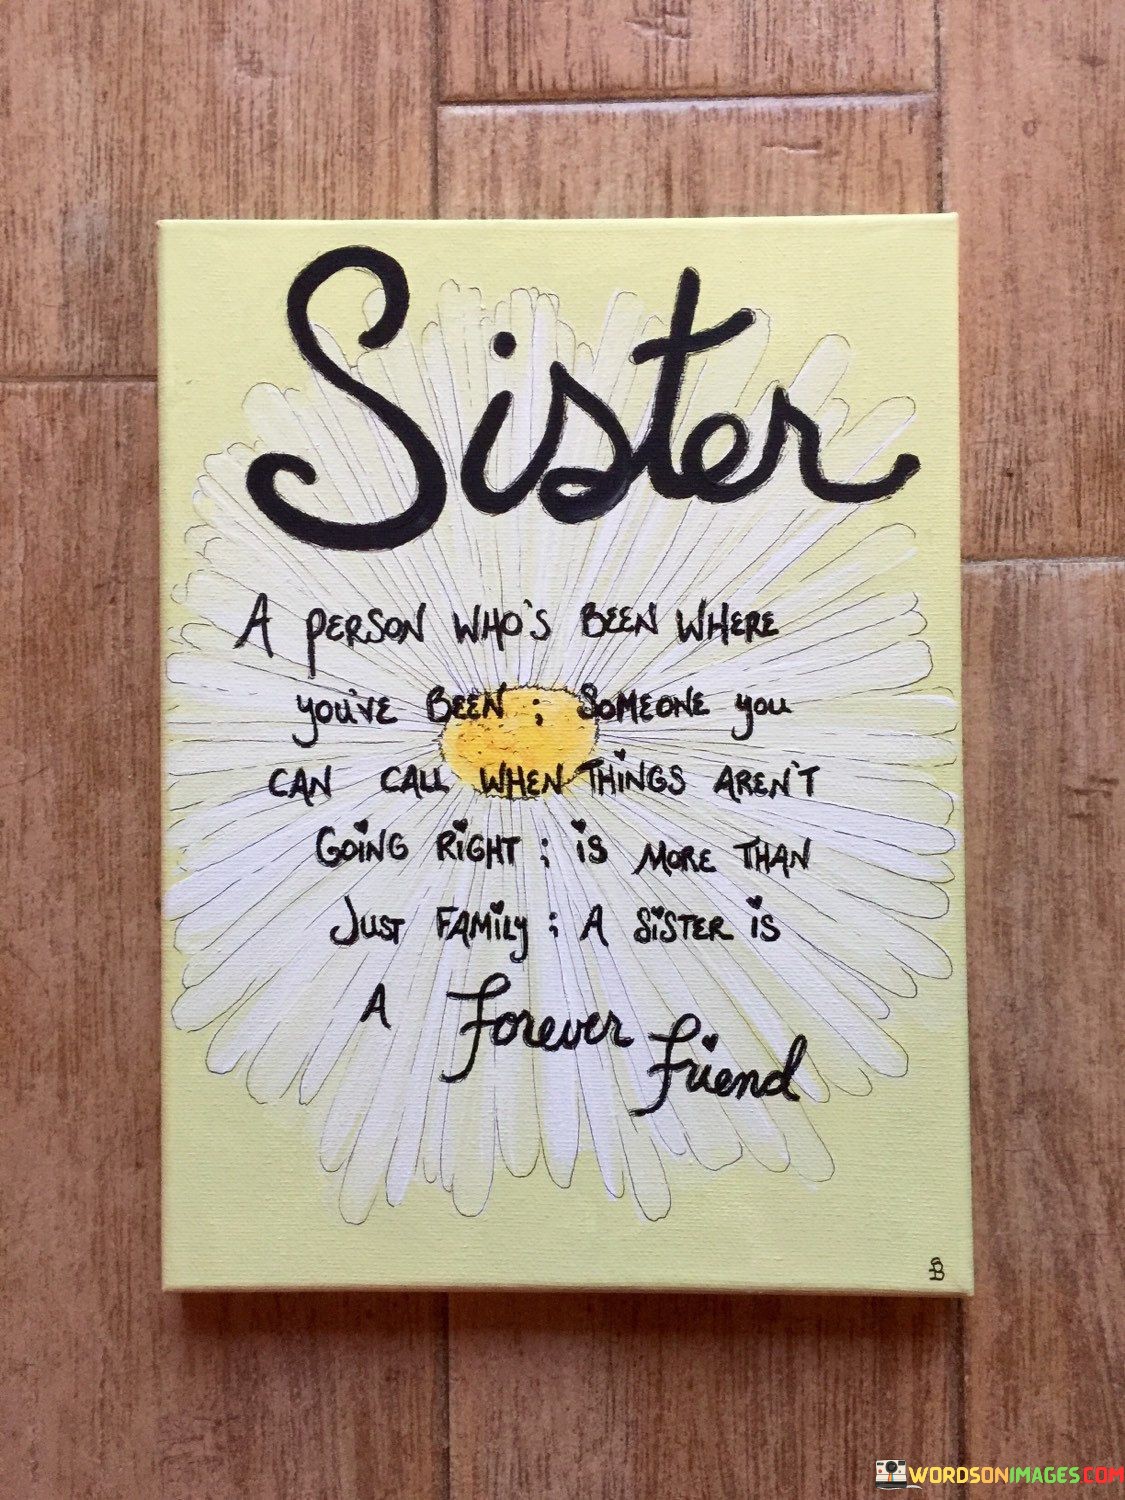 Sister
A PERSON WHO'S BEEN WHERE
YOU'VE BEEN ; SOMEONE YOU
CAN CALL WHEN THINGS AREN'T
GOING RIGHT ; IS MORE THAN
JUST FAMILY ; A SISTER IS
A Forever Friend
SB
WORDSONIMAGES.COM